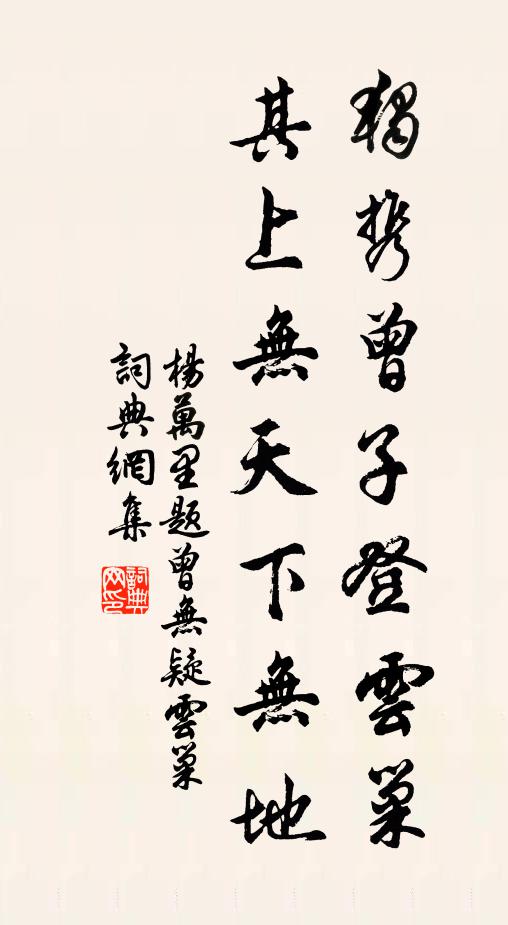 獨携曾子登雲巢
其上無天下無地
楊萬里題曾無疑雲巢
詞典網集
詞典網印